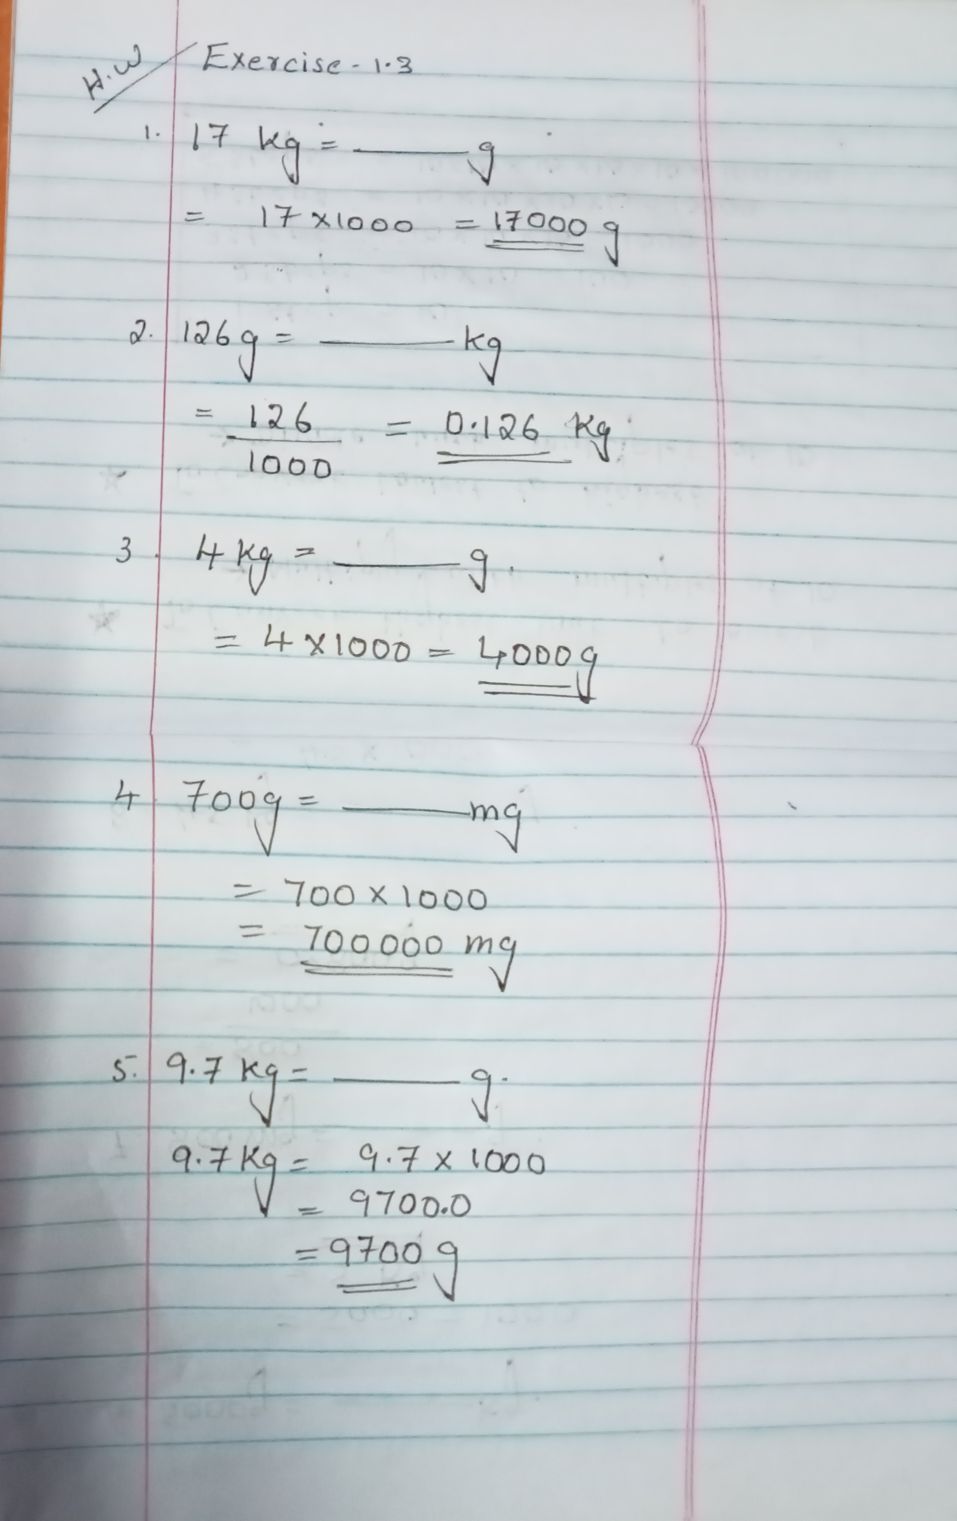 H.W
Exercise - 1.3
1. 17 kg = ______ g
= 17 × 1000 = 17000 g
2. 126 g = ______ kg
= 126/1000 = 0.126 Kg
3. 4 kg = ______ g.
= 4 × 1000 = 4000 g
4 700g = ______ mg
= 700 × 1000
= 700000 mg
5. 9.7 kg = ______ g.
9.7 Kg = 9.7 × 1000
= 9700.0
= 9700 g